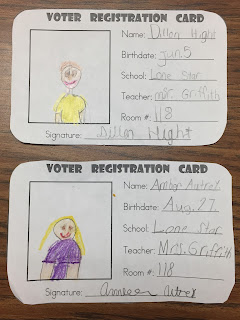 VOTER REGISTRATION CARD
Name: Dillon Hight
Birthdate: Jun. 5
School: Lone Star
Teacher: Mrs. Griffith
Room #: 118
Signature: Dillon Hight
VOTER REGISTRATION CARD
Name:
Birthdate: Aug. 27
School: Lone Star
Teacher: Mrs. Griffith
Room #: 118
Signature: